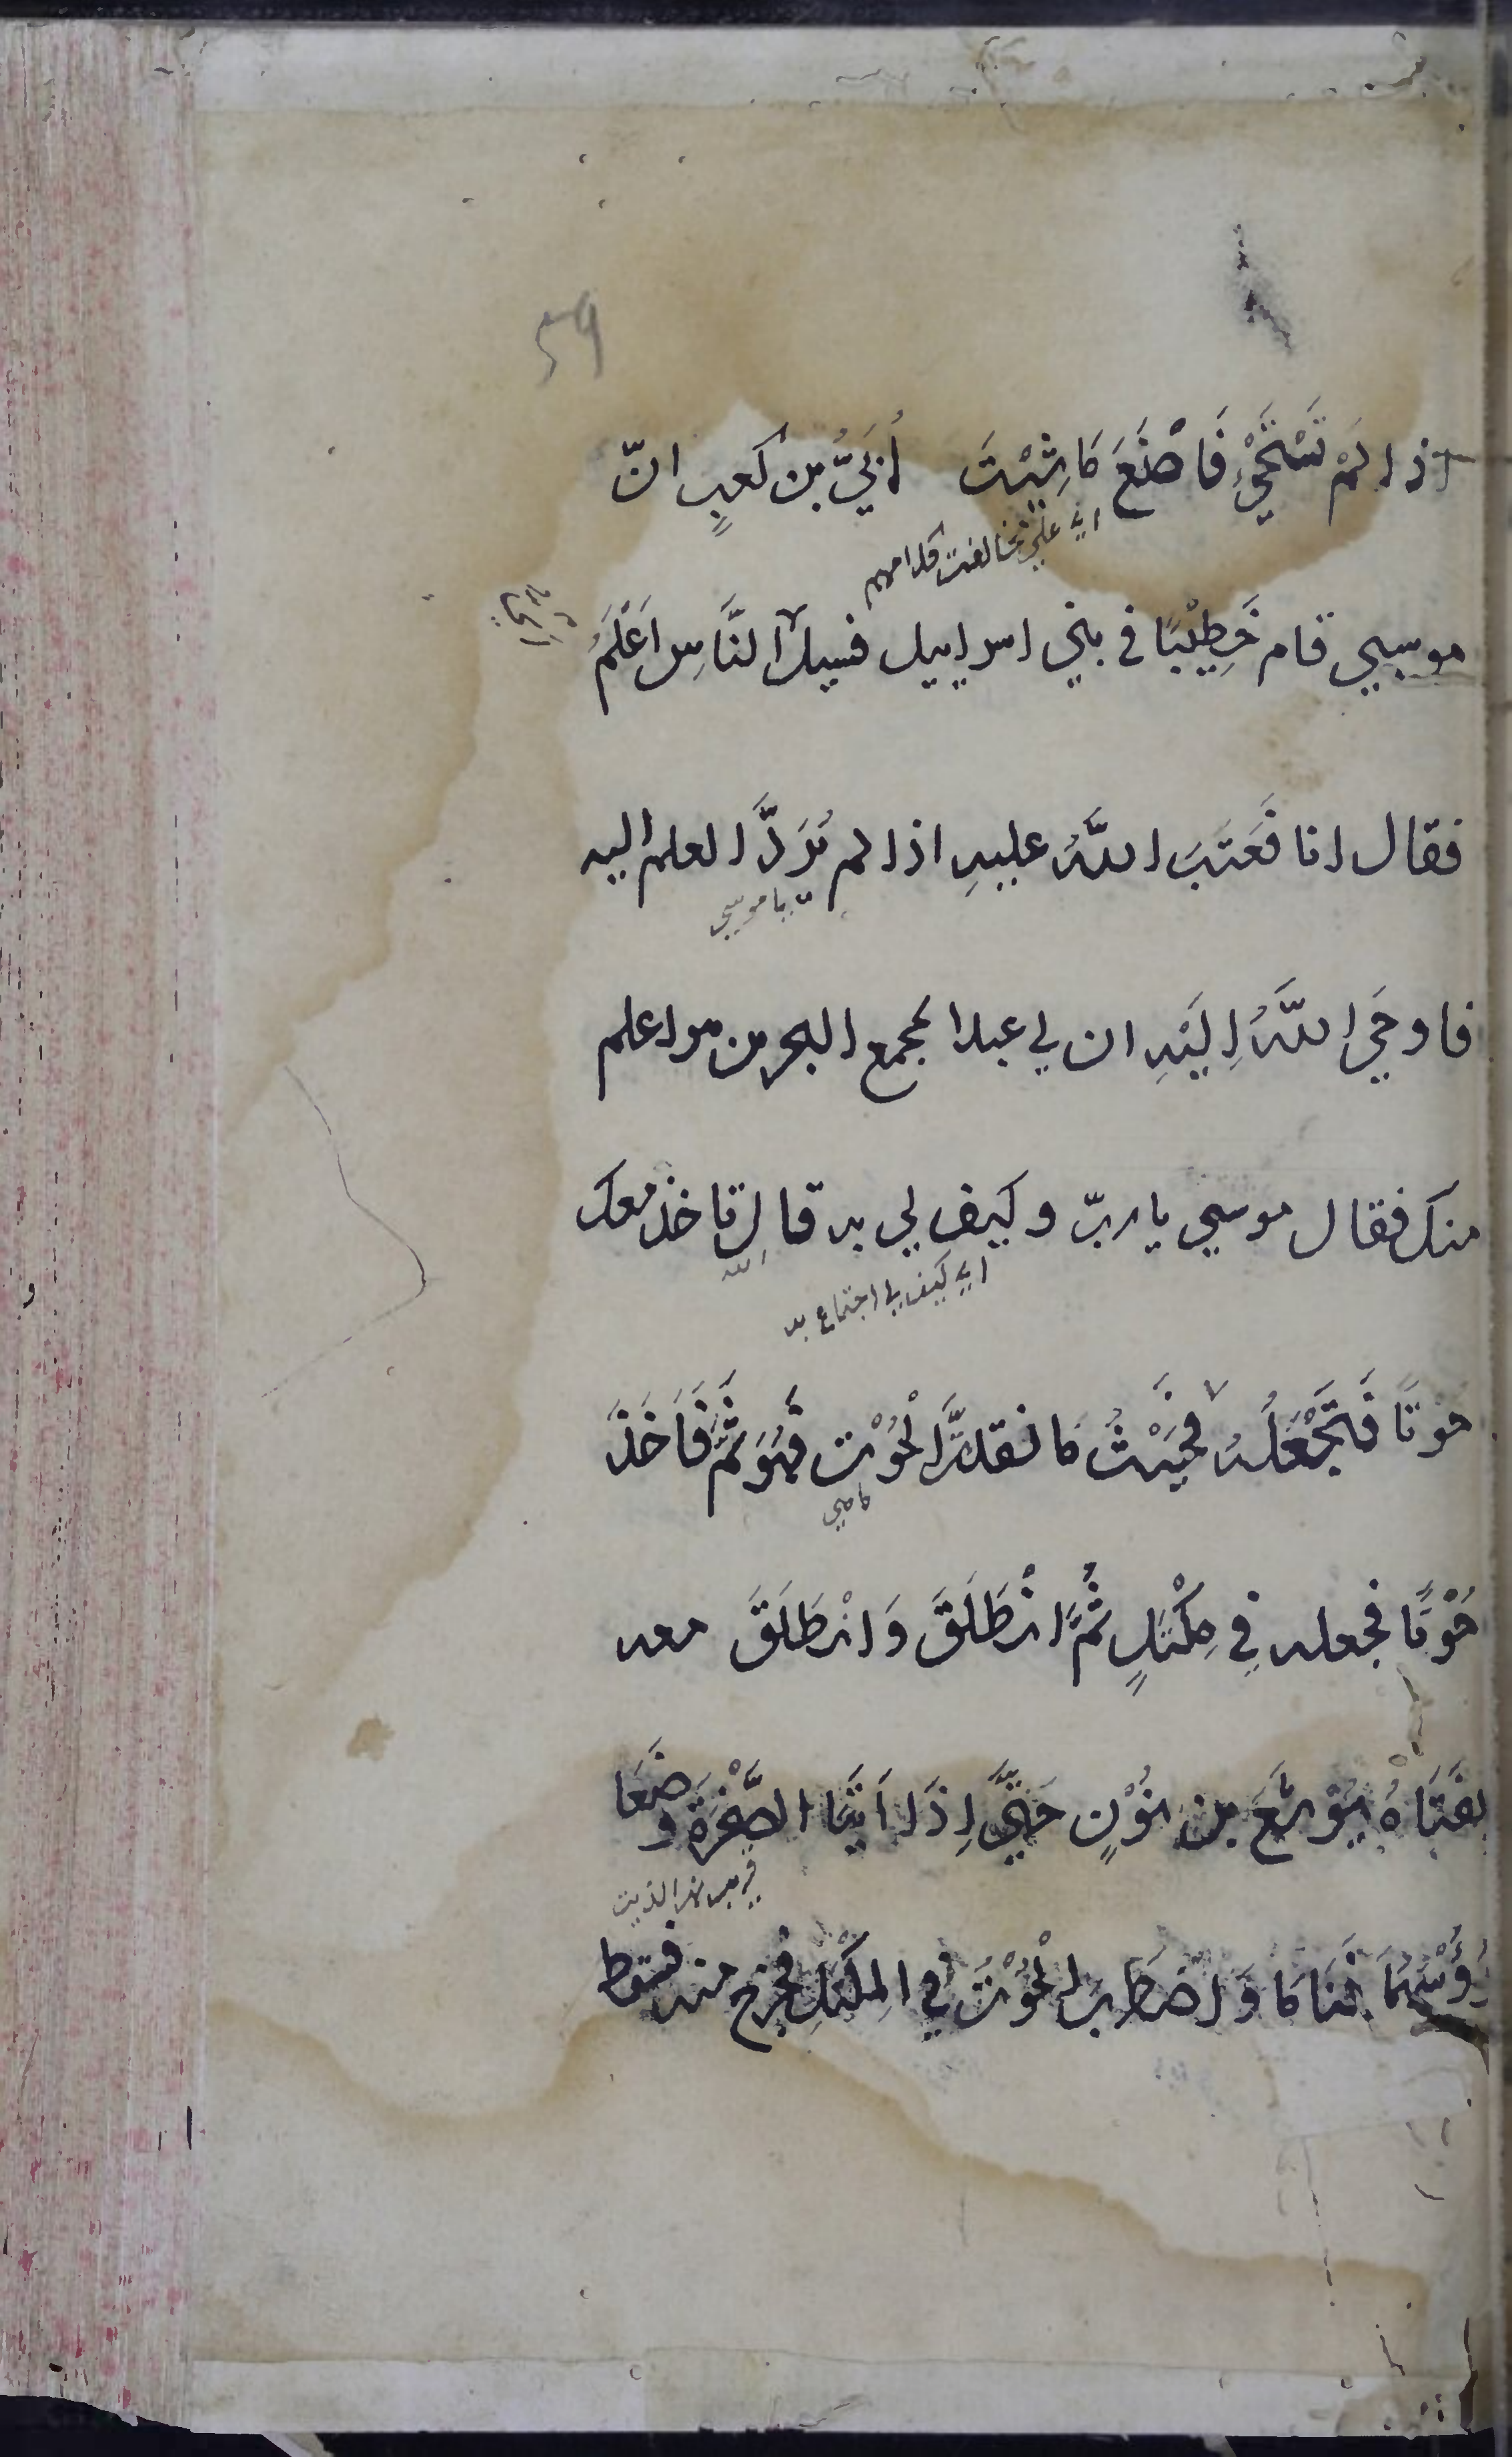 59
اذا لَمْ تَسْتَحْيِ فَاصْنَعَ مَا شِئْتَ أُبَيُّ بن كعبٍ انّ
موسي قام خَطِيْبًا في بني اسراييل فسيل النَّاسِ اَعْلَمُ
فقال انا فَعَتَبَ اللّٰهُ عليهِ اذا لم يَرَدَّ العلم اليه
يا موسي
فاوحَي اللّٰهُ اِلَيْهِ ان لي عبدا بمجمع البحرين هو اعلم
منك فقال موسي يا ربّ وكيف لي به قال تاخذ معك
الله
اي كيف لي اجتماع به
حُوْتًا فَتَجْعَلُه فحَيْثُ ما نقدتَّ الْحُوْت فَهُوَ ثَمَّ فَاَخَذَ
حُوْتًا فجعله فِي مِكْتَلٍ ثُمَّ انْطَلَقَ وَانْطَلَقَ معه
بفَتَاهُ يُوْشَعَ بن نُوْنٍ حَتّيَ اِذَا اَتَيَا الصَّخْرَةَ وضَعَا
رُؤُسَهُمَا فَنَامَا وَاضْطَرب الْحُوْتُ فِي المِكْتَلِ فخرج منه فسقط